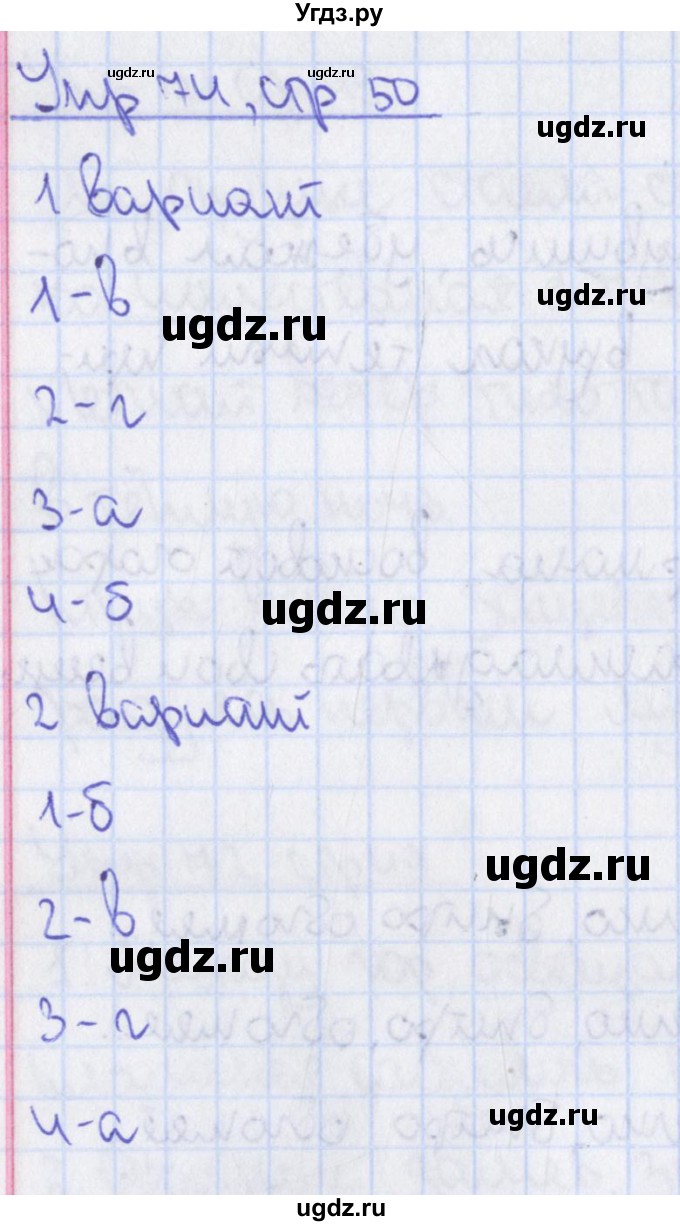 Угдз.ру
ugdz.ru ugdz.ru
Упр 74, стр 50
ugdz.ru
1 вариант
1-в
ugdz.ru
ugdz.ru
2-г
3-а
4-б
ugdz.ru
2 вариант
1-б
ugdz.ru
2-в
ugdz.ru
3-г
4-а
ugdz.ru
ugdz.ru